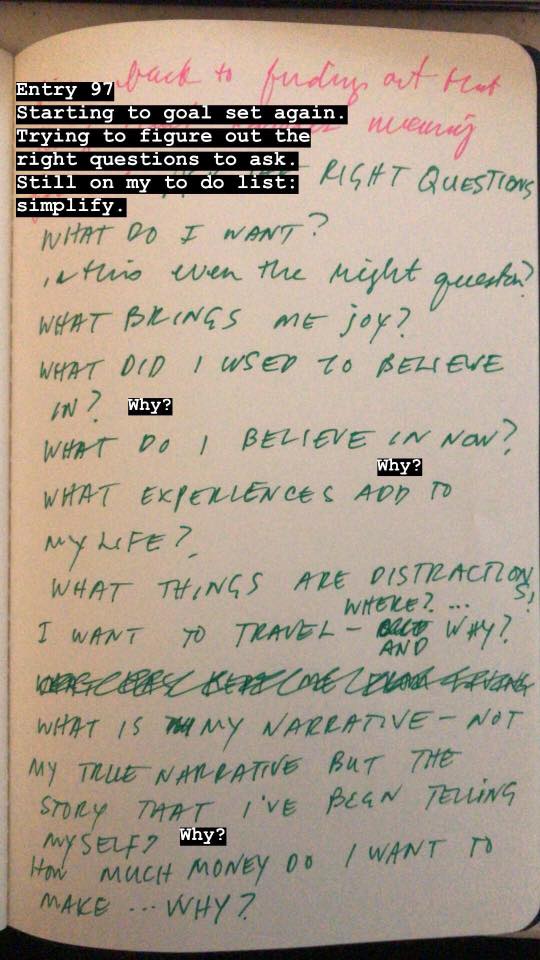 back to finding out that
Entry 97
Starting to goal set again.
meaning
Trying to figure out the
right questions to ask.
RIGHT QUESTIONS
Still on my to do list:
simplify.
WHAT DO I WANT?
is this even the right question?
WHAT BRINGS ME JOY?
WHAT DID I USED TO BELIEVE
IN? Why?
WHAT DO I BELIEVE IN NOW?
Why?
WHAT EXPERIENCES ADD TO
MY LIFE?
WHAT THINGS ARE DISTRACTIONS!
WHERE? ...
I WANT TO TRAVEL - WHY?
AND
WHAT IS MY NARRATIVE - NOT
MY TRUE NARRATIVE BUT THE
STORY THAT I'VE BEEN TELLING
MYSELF? Why?
HOW MUCH MONEY DO I WANT TO
MAKE ... WHY?